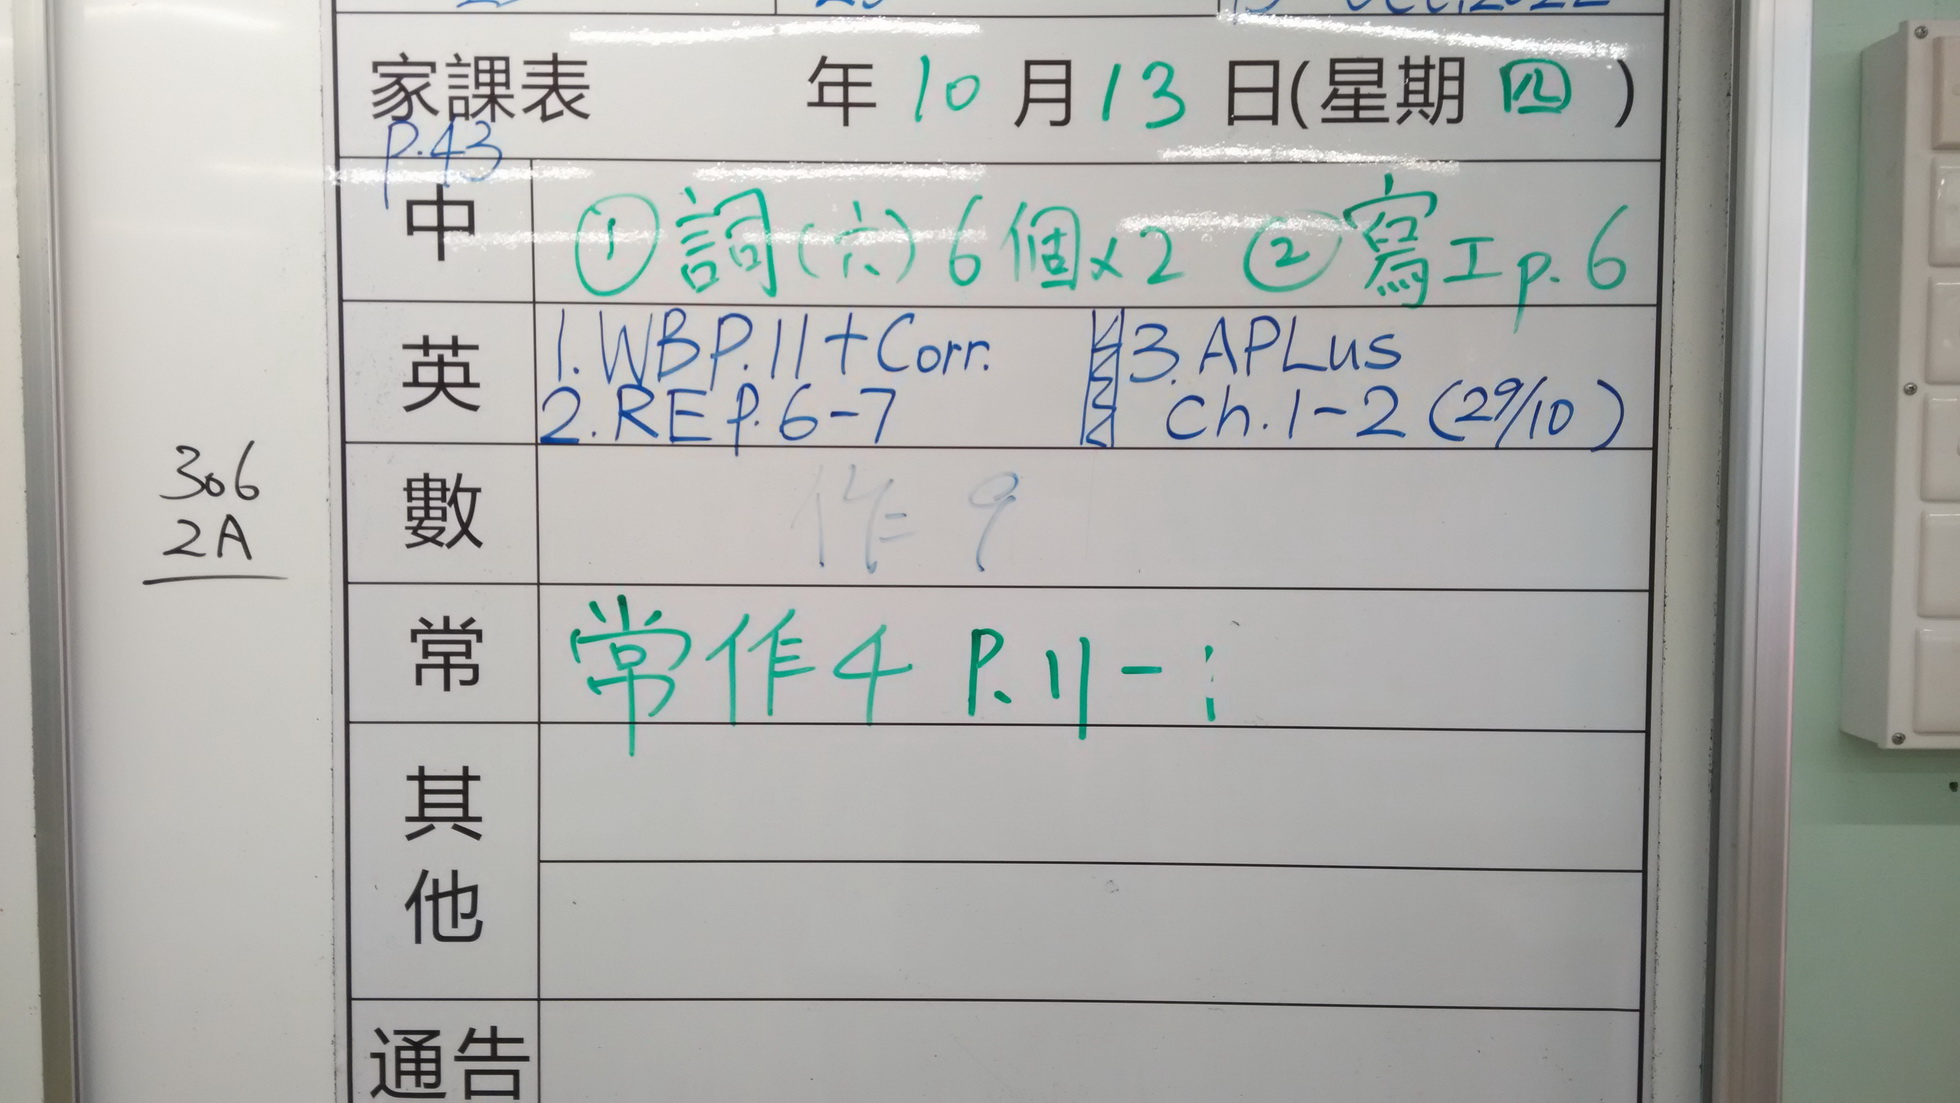 家課表 年 10 月 13 日(星期 四 )
P.43
中 ① 詞(六) 6個x2 ② 寫工 p.6
英 1. WB P.11 + Corr.
2. RE p.6-7
3. APLus
Ch.1-2 (29/10)
306
2A
數 作 9
常 常作4 P.11-
其他
通告